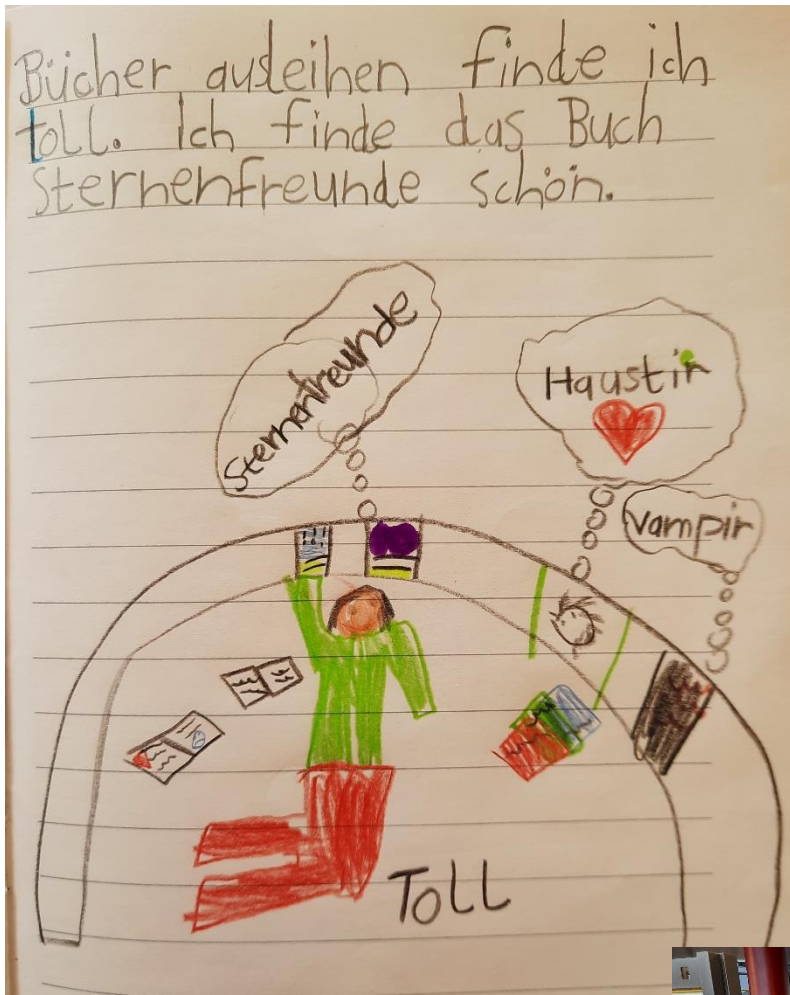 Bücher ausleihen finde ich
toll. Ich finde das Buch
Sternenfreunde schön.
Sternenfreunde
Haustir
Vampir
Toll